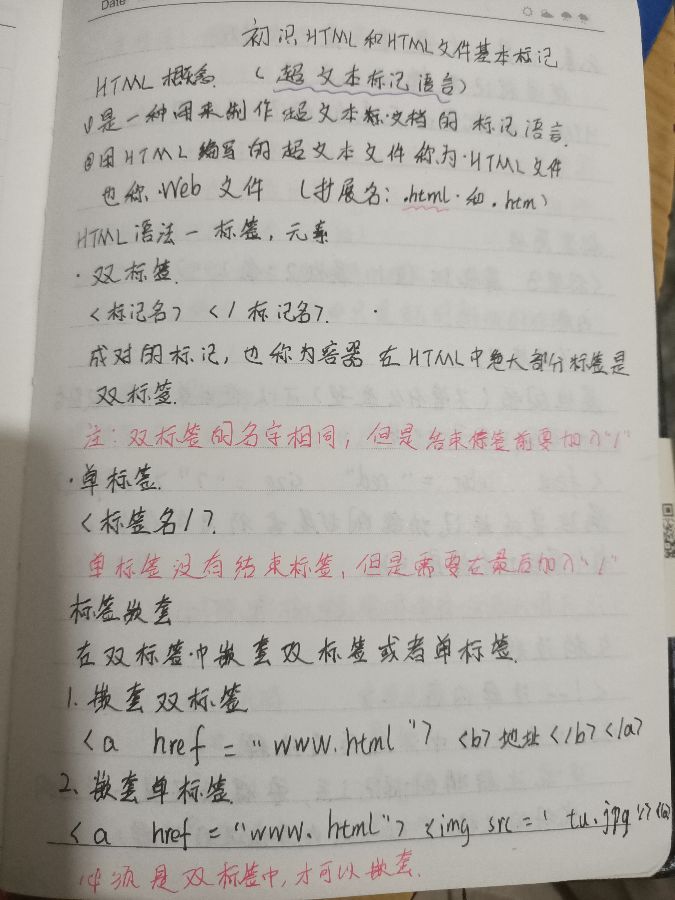 Date
初识HTML和HTML文件基本标记
HTML概念. (超文本标记语言)
①是一种用来制作超文本标文档的标记语言.
②用HTML编写的超文本文件称为·HTML文件
也称·Web文件 (扩展名: .html·和.htm)
HTML语法一标签,元素
·双标签.
<标记名> </标记名>.
成对的标记,也称为容器 在HTML中绝大部分标签是
双标签.
注:双标签的名字相同,但是结束标签前要加入"/"
·单标签.
<标签名/>.
单标签没有结束标签,但是需要在最后加入"/"
标签嵌套
在双标签·中嵌套双标签或者单标签.
1.嵌套双标签
<a href="www.html"> <b>地址</b></a>
2、嵌套单标签.
<a href="www.html"> <img src="tu.jpg"/></a>
必须是双标签中,才可以嵌套.